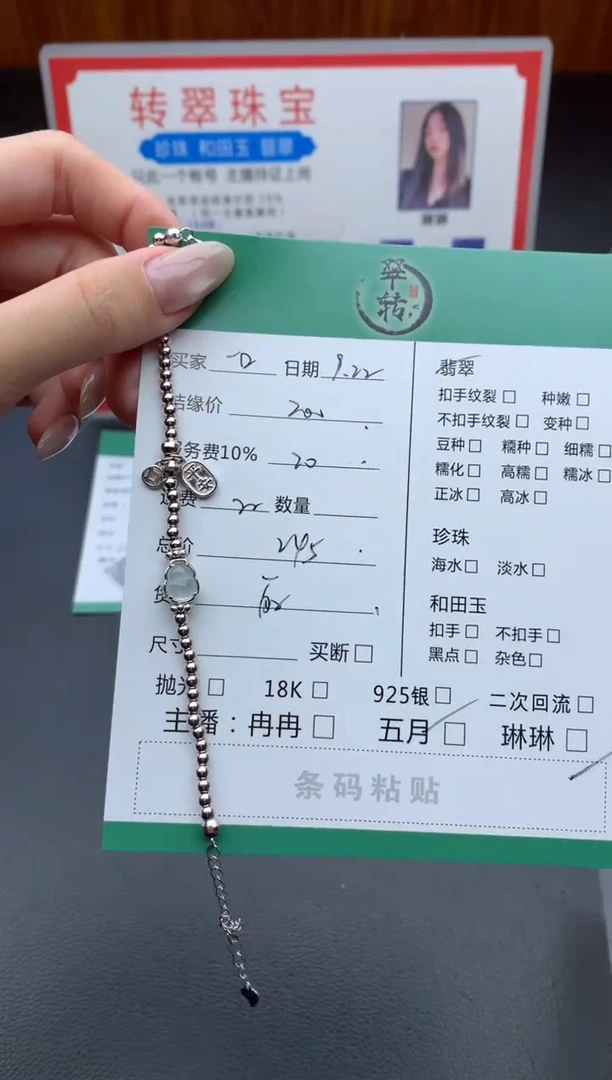 转翠珠宝
珍珠 和田玉 翡翠
只此一个帐号 主播持证上岗
翠
转
买家 日期 9.22
结缘价 200
务费10% 20
运费 数量
总价 245
货
尺寸 买断□
抛光□ 18K□ 925银□ 二次回流□
主播：冉冉□ 五月□ 琳琳□
条码粘贴
翡翠
扣手纹裂□ 种嫩□
不扣手纹裂□ 变种□
豆种□ 糯种□ 细糯□
糯化□ 高糯□ 糯冰□
正冰□ 高冰□
珍珠
海水□ 淡水□
和田玉
扣手□ 不扣手□
黑点□ 杂色□